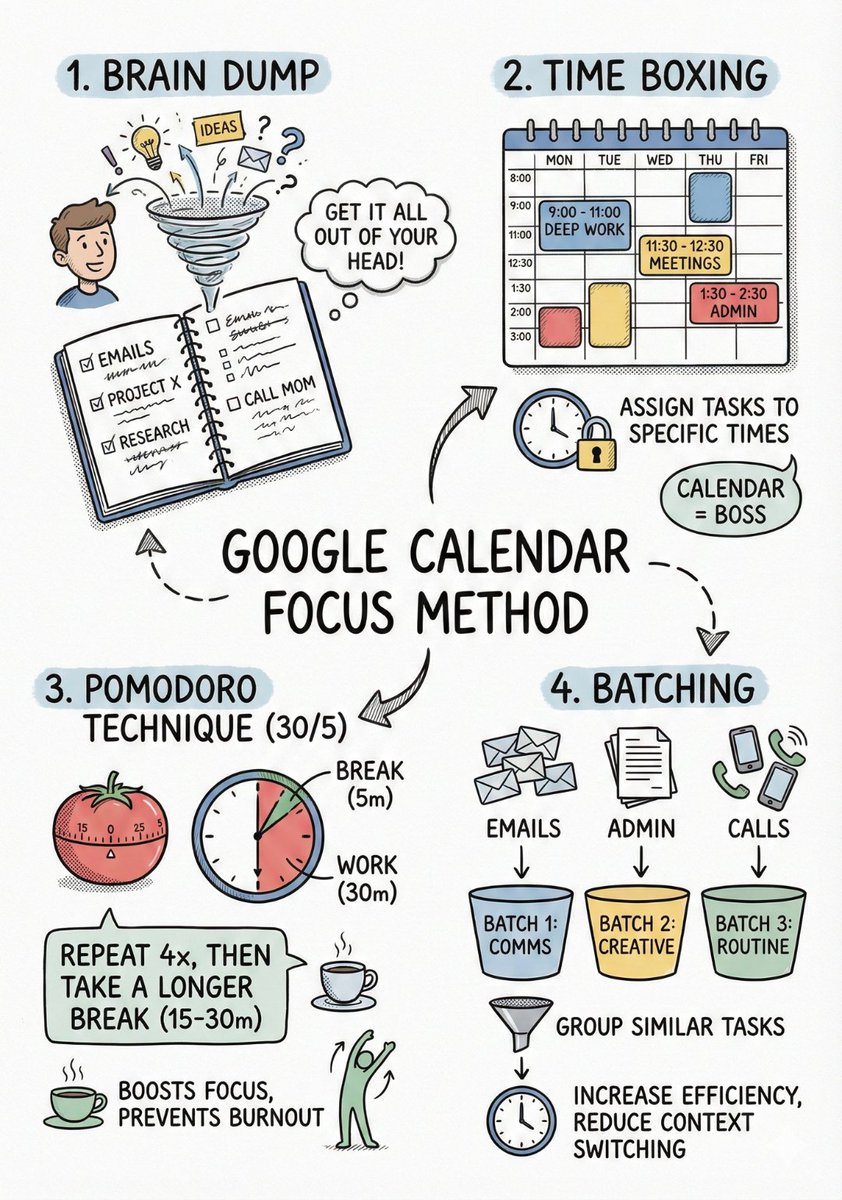 1. BRAIN DUMP
IDEAS
?
?
?
!
GET IT ALL
OUT OF YOUR
HEAD!
EMAILS
PROJECT X
RESEARCH
CALL MOM
2. TIME BOXING
MON TUE WED THU FRI
8:00
9:00
11:00
12:30
1:30
2:00
3:00
9:00 - 11:00
DEEP WORK
11:30 - 12:30
MEETINGS
1:30 - 2:30
ADMIN
ASSIGN TASKS TO
SPECIFIC TIMES
CALENDAR
= BOSS
GOOGLE CALENDAR
FOCUS METHOD
3. POMODORO
TECHNIQUE (30/5)
15 0 25 5
BREAK
(5m)
WORK
(30m)
REPEAT 4x, THEN
TAKE A LONGER
BREAK (15-30m)
BOOSTS FOCUS,
PREVENTS BURNOUT
4. BATCHING
EMAILS
ADMIN
CALLS
BATCH 1:
COMMS
BATCH 2:
CREATIVE
BATCH 3:
ROUTINE
GROUP SIMILAR TASKS
INCREASE EFFICIENCY,
REDUCE CONTEXT
SWITCHING